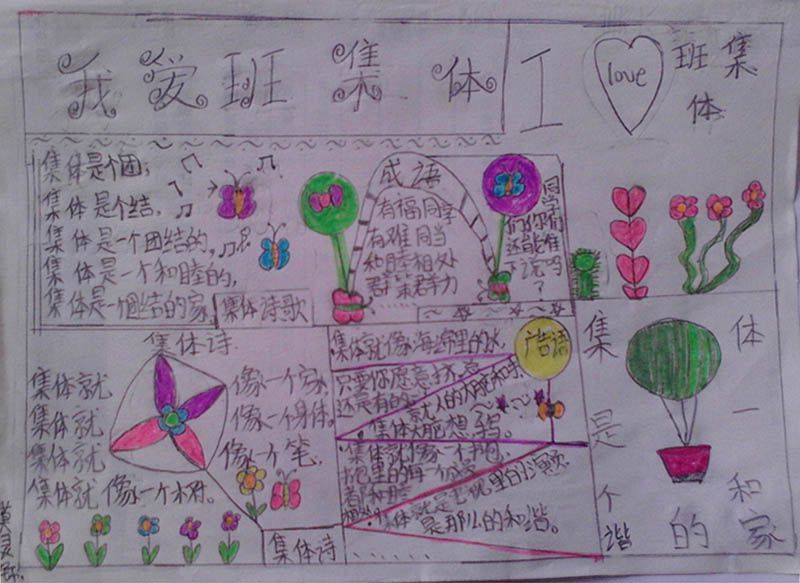 我爱班集体
I love 班集体
集体是个团,
集体是个结,
集体是一个团结的,
集体是一个和睦的,
集体是一个团结的家
集体诗歌
成语
有福同学
有难同当
和睦相处
同学们你们还能准说吗?
集体诗
集体就 像一个家,
集体就 像一个身体,
集体就 像一个笔,
集体就像一个水杯.
集体诗
广告语
集体就像海绵里的水,
只要你愿意挤,总
还是有的
集体大脑想
集体就像一个书包,
书包里的每一个
是那么的和谐.
集体是一个和谐的家